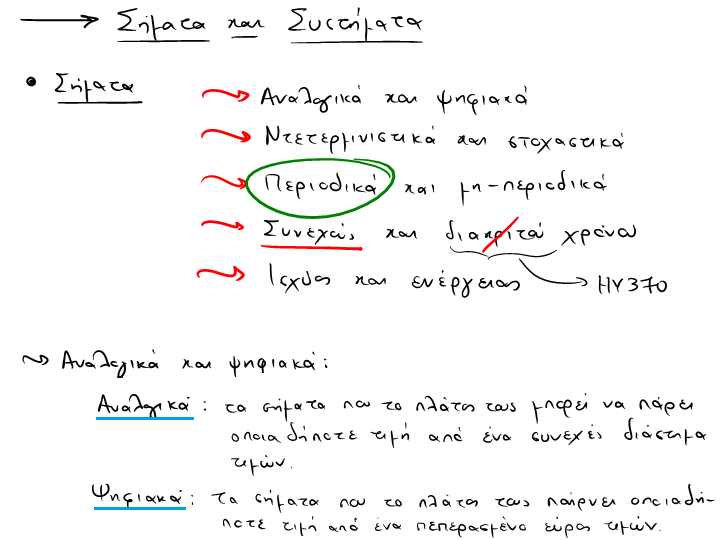 Σήματα και Συστήματα
• Σήματα
Αναλογικά και ψηφιακά
Ντετερμινιστικά και στοχαστικά
Περιοδικά και μη-περιοδικά
Συνεχούς και διακριτού χρόνου
Ισχύος και ενέργειας → ΗΥ370
Αναλογικά και ψηφιακά:
Αναλογικά: τα σήματα που το πλάτος τους μπορεί να πάρει
οποιαδήποτε τιμή από ένα συνεχές διάστημα
τιμών.
Ψηφιακά: τα σήματα που το πλάτος τους παίρνει οποιαδή-
ποτε τιμή από ένα πεπερασμένο εύρος τιμών.